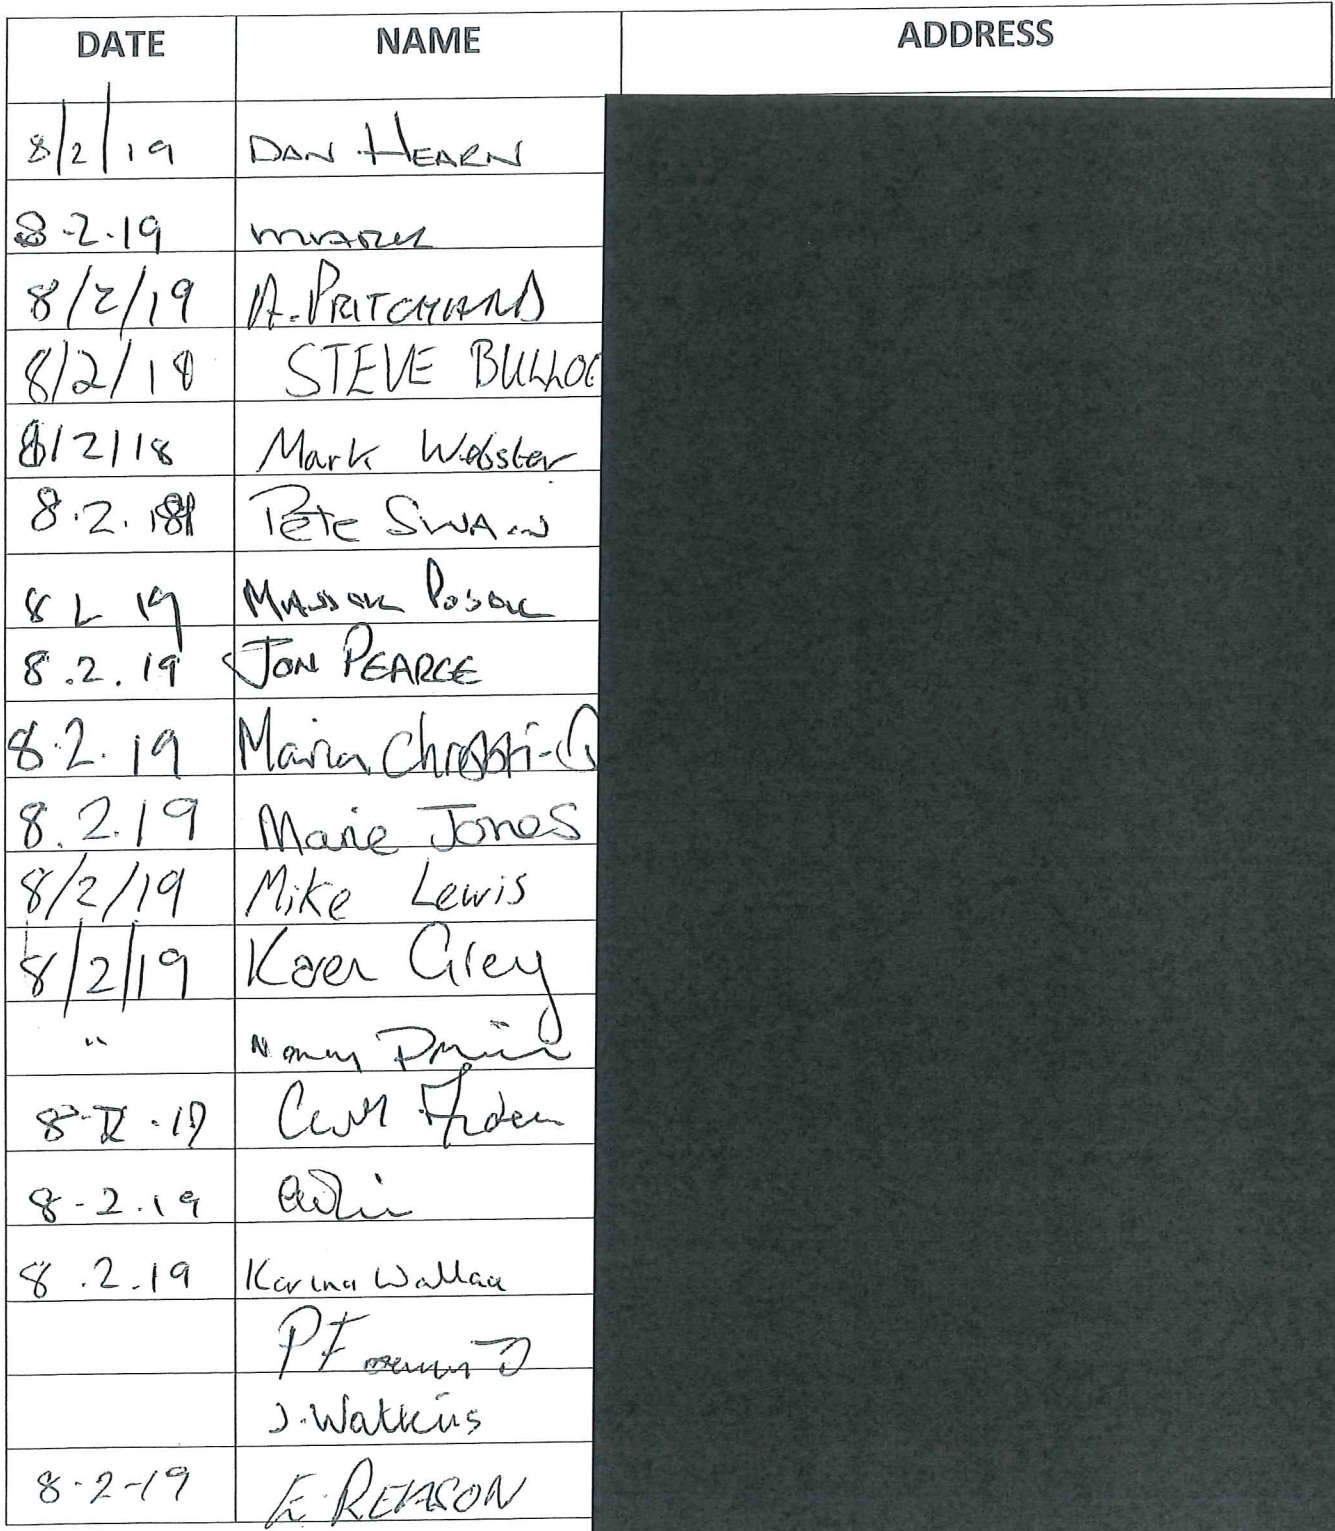 DATE NAME ADDRESS
8/2/19 DAN HEARN
8.2.19
8/2/19 A. PRITCHARD
8/2/18 STEVE BULLOC
8/2/18 Mark Webster
8.2. Pete SWAIN
8 2 19
8.2.19 JON PEARCE
8.2.19 Maria
8.2.19 Marie Jones
8/2/19 Mike Lewis
8/2/19 Karen Grey
"
8-II-19
8-2.19
8.2.19 Karina Wallace
P F
J. Watkins
8-2-19 E. REASON